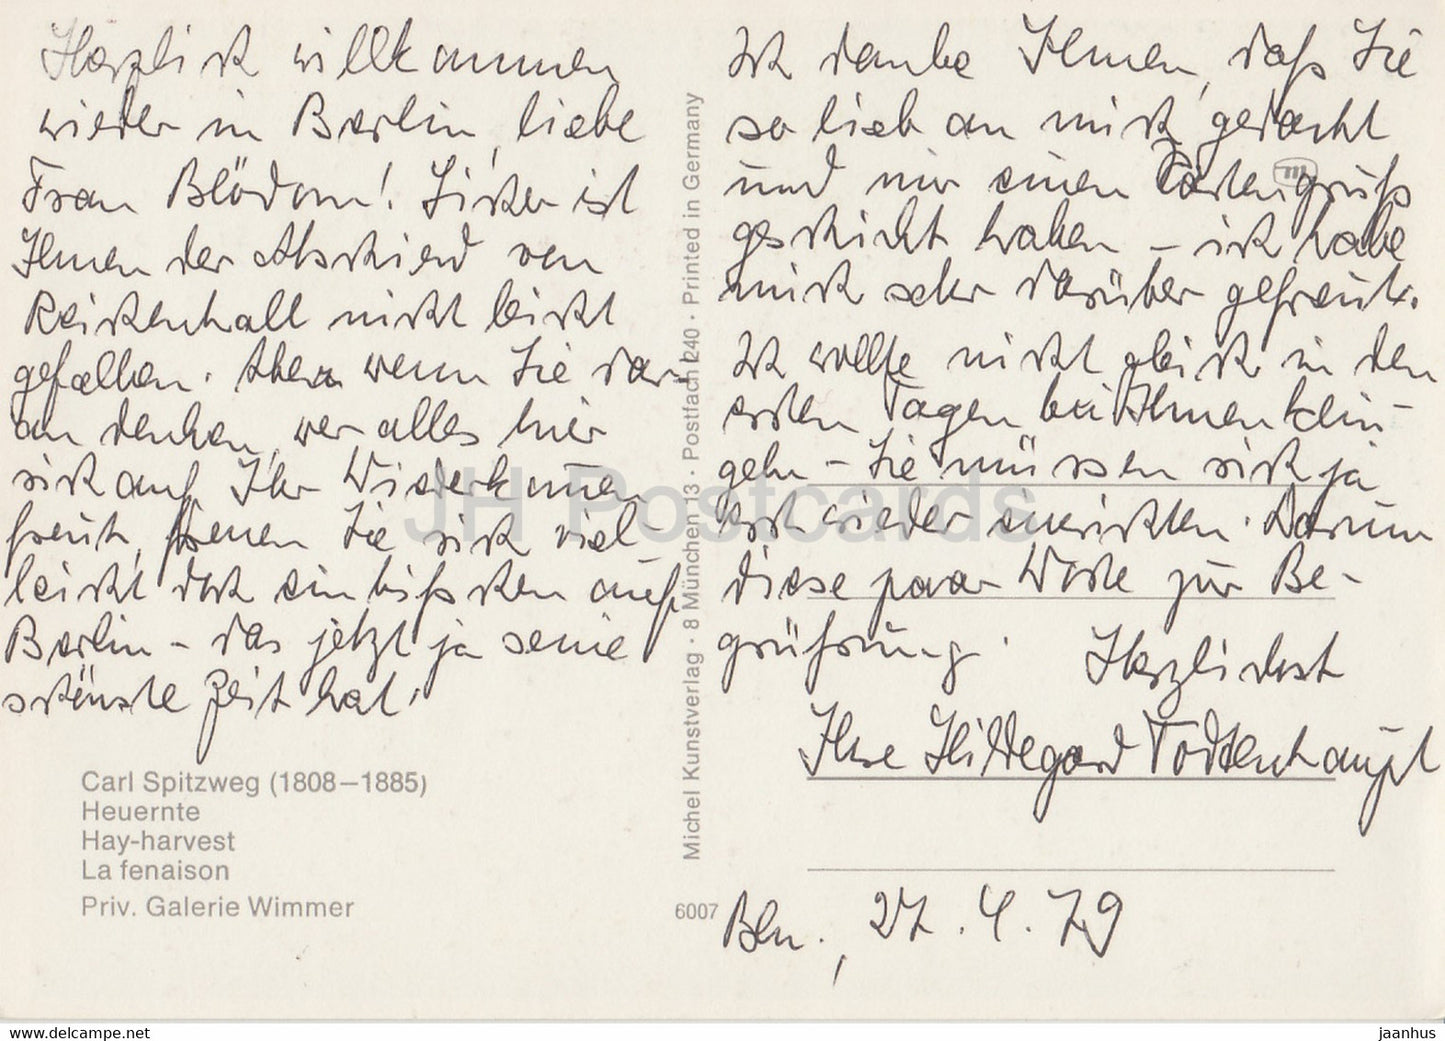 Herzlich willkommen
wieder in Berlin, liebe
Frau Blödorn! Sicher ist
Ihnen der Abschied von
Reichenhall nicht leicht
gefallen. Aber wenn Sie dar-
an denken, wer alles hier
sich auf Ihr Wiederkommen
freut, freuen Sie sich viel-
leicht doch ein bißchen auf
Berlin – das jetzt ja seine
schönste Zeit hat.
Carl Spitzweg (1808–1885)
Heuernte
Hay-harvest
La fenaison
Priv. Galerie Wimmer
Michel Kunstverlag · 8 München 13 · Postfach 240 · Printed in Germany
6007
Ich danke Ihnen, daß Sie
so lieb an mich gedacht
und mir einen Kartengruß
geschickt haben – ich habe
mich sehr darüber gefreut.
Ich wollte nicht gleich in den
ersten Tagen bei Ihnen klin-
geln – Sie müssen sich ja
erst wieder einrichten. Darum
diese paar Worte zur Be-
grüßung. Herzlichst
Ihre Hildegard Todtenhaupt
Bln., 27.4.79
m
JH Postcards
www.delcampe.net
jaanhus